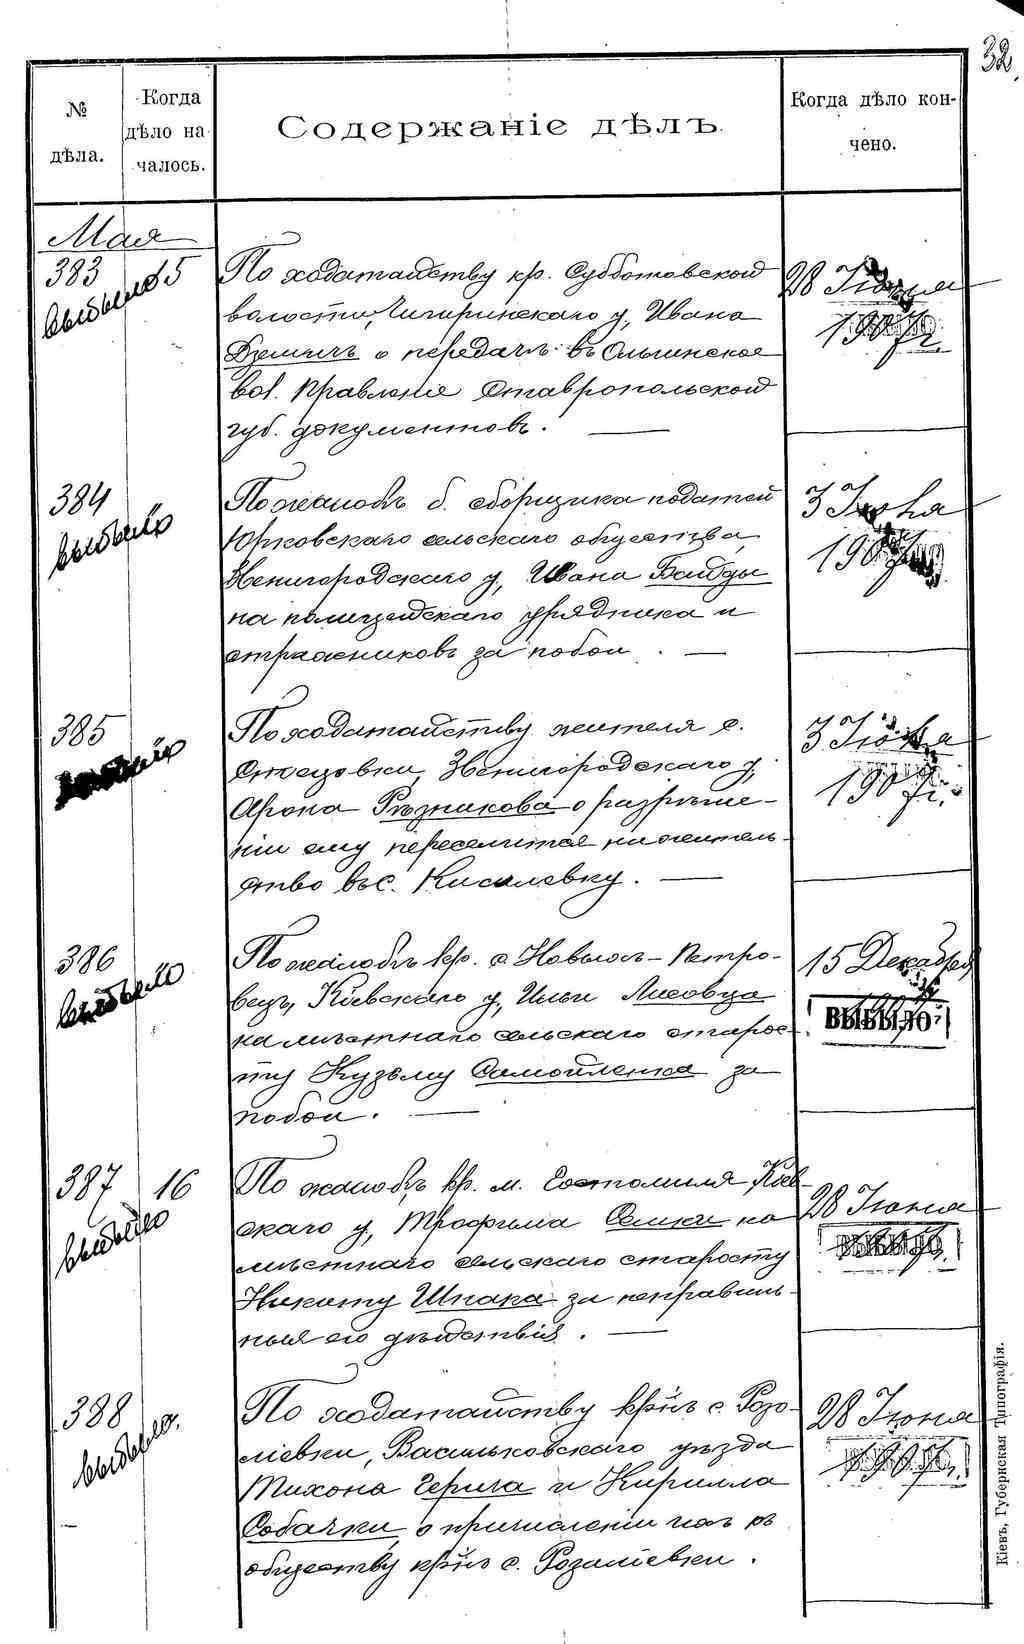 32.
№ дѣла.
Когда дѣло началось.
Содержаніе дѣлъ.
Когда дѣло кончено.
Мая
383
15
выбыло
По ходатайству кр. Субботовской
волости, Чигиринскаго у, Ивана
о передачѣ въ Ольгинское
вол. Правленіе Ставропольской
губ. документовъ.
28 Іюня
1907 г.
384
выбыло
По жалобѣ б. сборщика податей
Юрковскаго сельскаго общества,
Звенигородскаго у, Ивана Байды
на полицейскаго урядника и
стражниковъ за побои.
3 Іюня
1907
385
По ходатайству жителя с.
Звенигородскаго у,
Арона Рѣзникова о разрѣше-
ніи ему переселиться на житель-
ство въ с. Киселевку.
3 Іюня
1907 г.
386
выбыло
По жалобѣ кр. с. Новыхъ-Петро-
вецъ, Кіевскаго у, Ильи Лисовца
на мѣстнаго сельскаго старос-
ту Кузьму Самойленка за
побои.
15 Декабря
1907
ВЫБЫЛО
387
16
выбыло
По жалобѣ кр. м. Гостомля Кіев-
скаго у, Трофима Семки на
мѣстнаго сельскаго старосту
Никиту Шпака за неправиль-
ныя его дѣйствія.
28 Іюня
ВЫБЫЛО
388
выбыло.
По ходатайству кр-нъ с. Розо-
ліевки, Васильковскаго уѣзда
Тихона Герича и Кирилла
Собачки, о причисленіи ихъ къ
обществу кр-нъ с. Розаліевки.
28 Іюня
1907 г.
Кіевъ, Губернская Типографія.